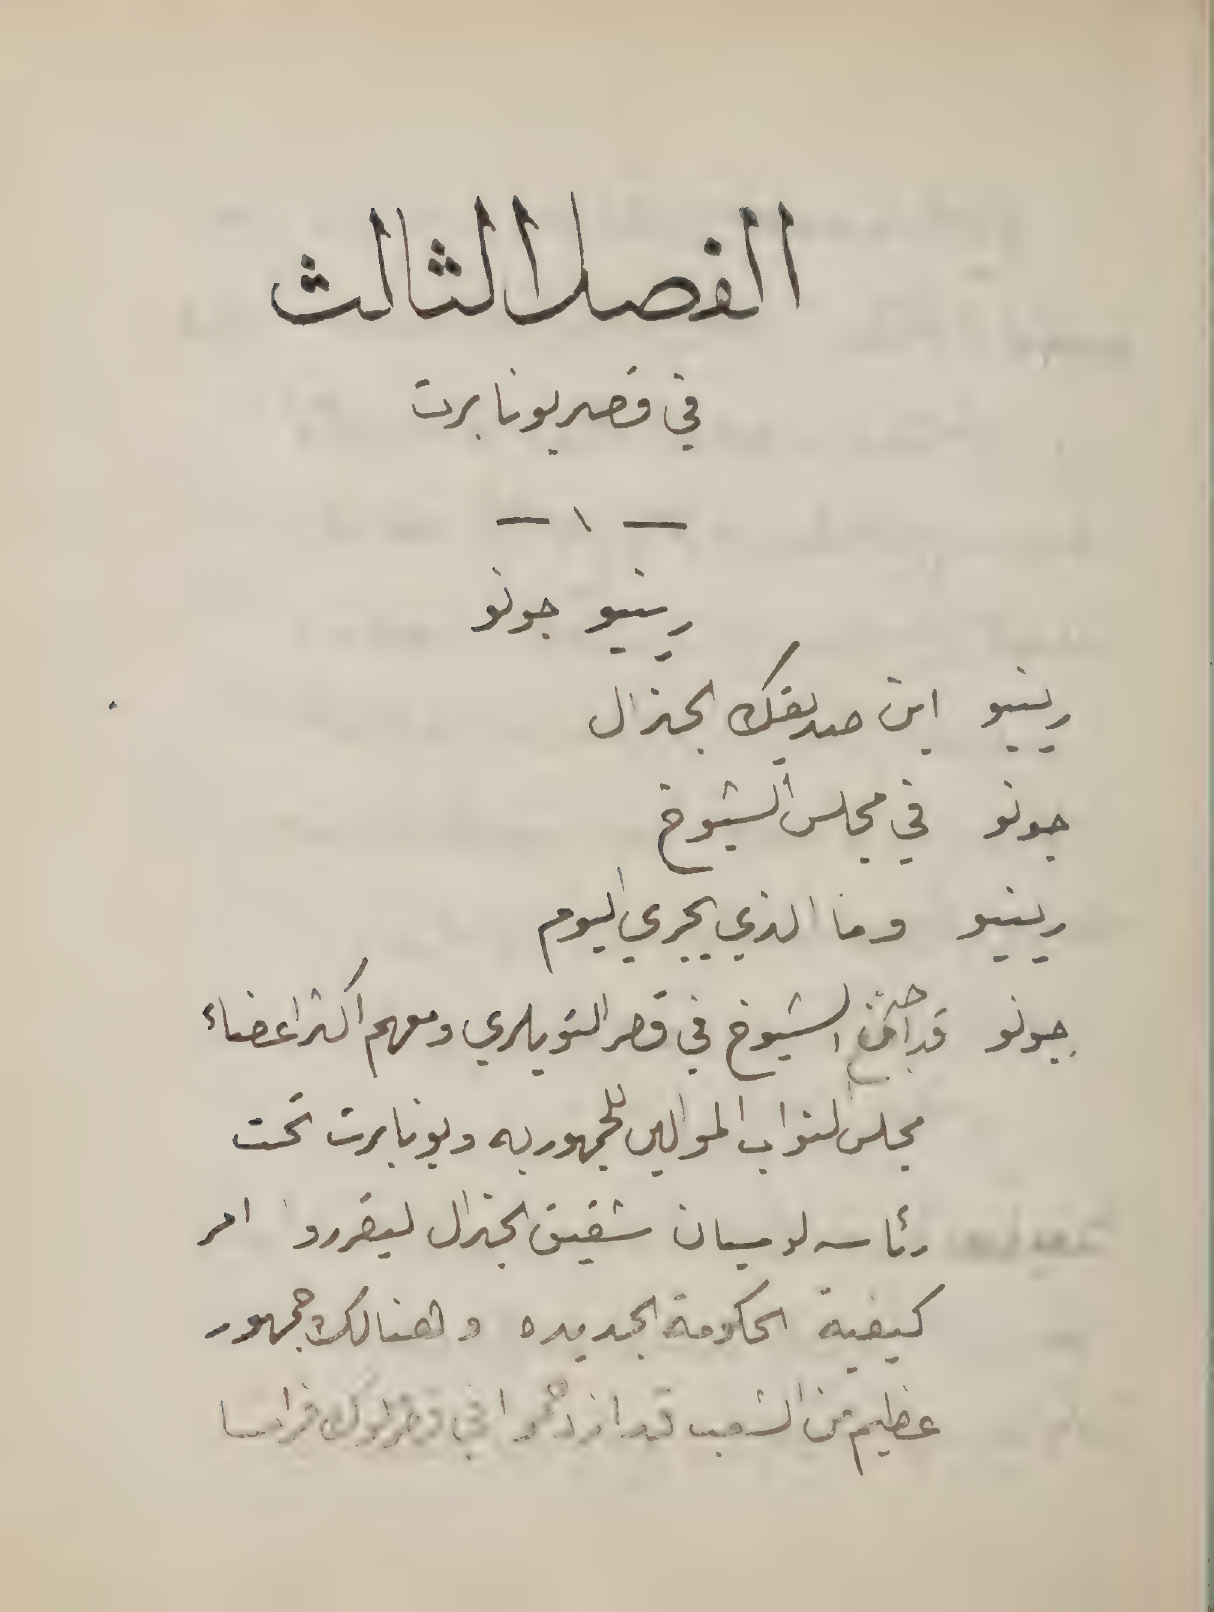 الفصل الثالث
في قصر بونابرت
— ١ —
رينيو جونو
رينيو اين صديقك الجنرال
جونو في مجلس الشيوخ
رينيو وما الذي يجري اليوم
جونو قد اجتمع الشيوخ في قصر التويلري ومعهم اكثر اعضاء
مجلس النواب الموالين للجمهوريه وبونابرت تحت
رئاسه لوسيان شقيق الجنرال ليقرروا امر
كيفية الحكومة الجديده وهنالك جمهور
عظيم من الشعب قد ازدحموا في قصر لوك فرانسا